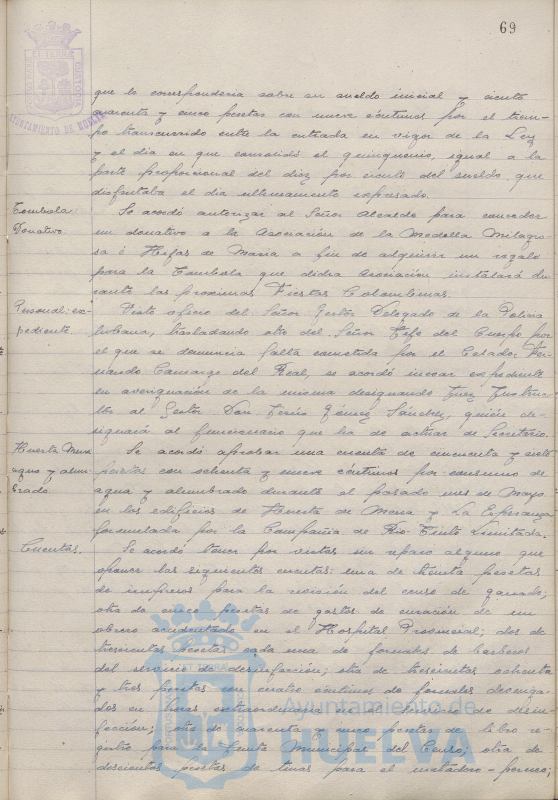 69
AYUNTAMIENTO DE HUELVA
que le correspondería sobre su sueldo inicial y ciento
cuarenta y cinco pesetas con nueve céntimos por el tiem-
po transcurrido entre la entrada en vigor de la Ley
y el día en que consolidó el quinquenio, igual a la
parte proporcional del diez por ciento del sueldo que
disfrutaba el día últimamente expresado.
Tombola:
Donativo.
Se acordó autorizar al Señor Alcalde para conceder
un donativo a la Asociación de la Medalla Milagro-
sa é Hijas de Maria a fin de adquirir un regalo
para la Tombola que dicha Asociación instalará du-
rante las proximas Fiestas Colombinas.
Personal: ex-
pediente.
Visto oficio del Señor Gestor Delegado de la Policia
Urbana, trasladando otro del Señor Jefe del Cuerpo por
el que se denuncia falta cometida por el Celador Fer-
nando Camargo del Real, se acordó incoar expediente
en averiguación de la misma designando Juez Instruc-
tor al Gestor Don Jesús Gómez Sánchez, quién de-
signará al funcionario que ha de actuar de Secretario.
Huerta Mena
agua y alum-
brado
Se acordó aprobar una cuenta de cincuenta y siete
pesetas con ochenta y nueve céntimos por consumo de
agua y alumbrado durante el pasado mes de Mayo
en los edificios de Huerta de Mena y La Esperanza
formulada por la Compañia de Rio-Tinto Limitada.
Cuentas.
Se acordó tener por vistas sin reparo alguno que
oponer las siguientes cuentas: una de treinta pesetas
de impresos para la revisión del censo de ganado;
otra de cinco pesetas de gastos de curación de un
obrero accidentado en el Hospital Provincial; dos de
trescientas pesetas cada una de jornales de barberos
del servicio de desinfección; otra de trescientas ochenta
y tres pesetas con cuatro céntimos de jornales devenga-
dos en horas extraordinarias en el servicio de desin-
fección; otra de cuarenta y cinco pesetas de libro re-
gistro para la Junta Municipal del Censo; otra de
doscientas pesetas de tinas para el matadero-porcuno;
Ayuntamiento de
HUELVA